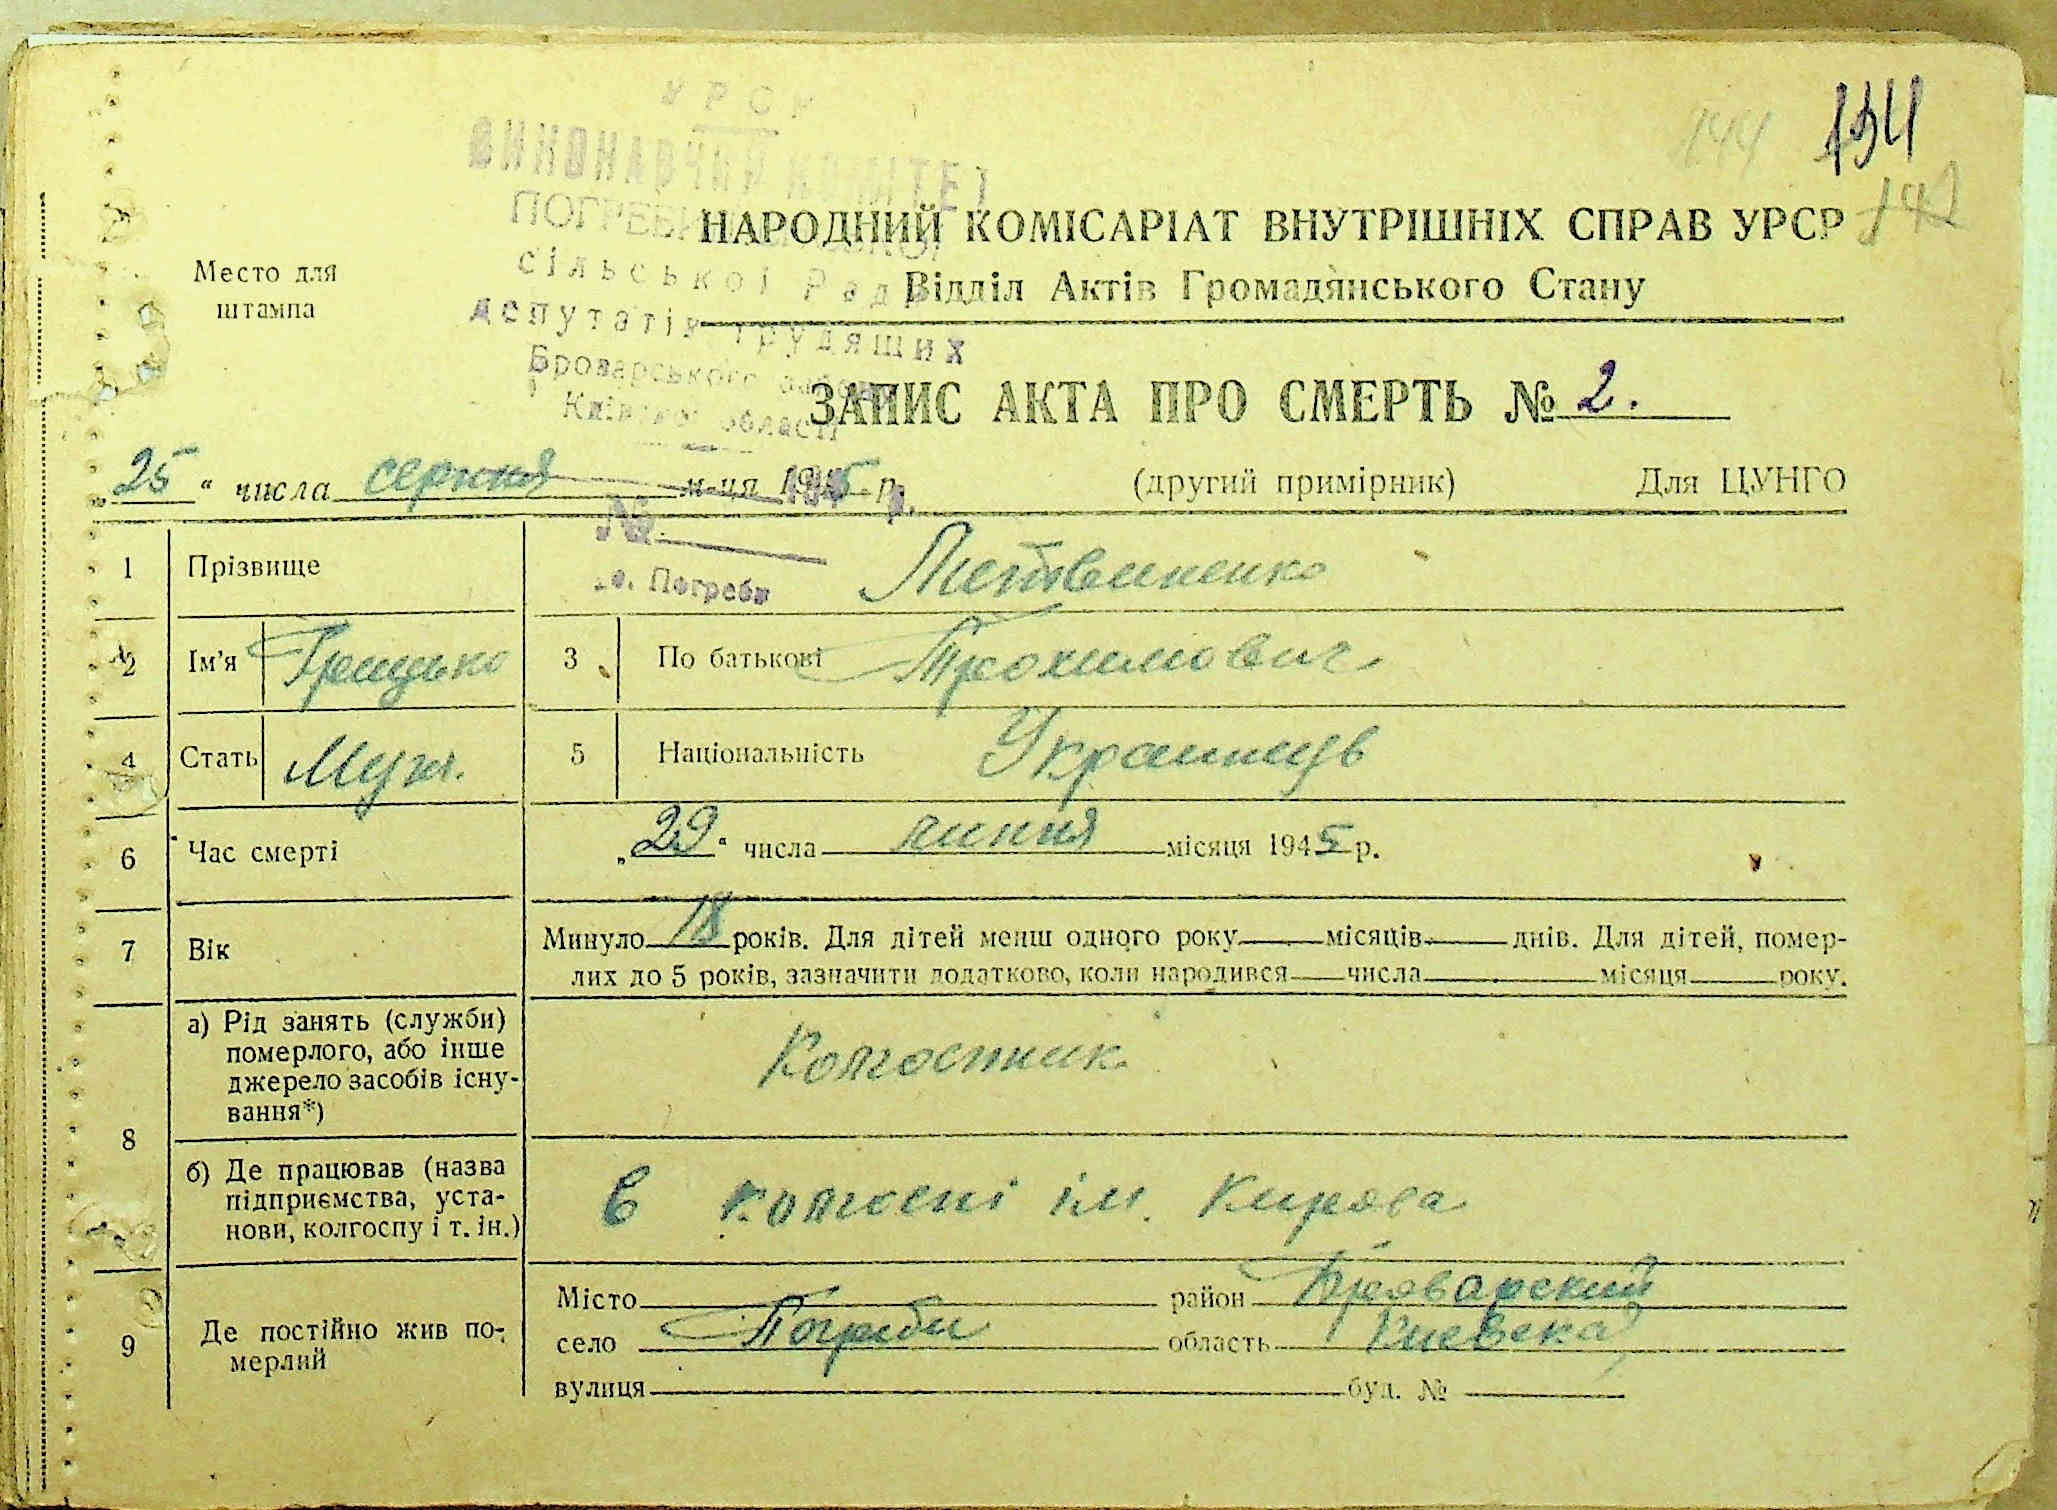 УРСР
144 134
ВИКОНАВЧИЙ КОМІТЕТ
142
НАРОДНИЙ КОМІСАРІАТ ВНУТРІШНІХ СПРАВ УРСР
Место для штампа
сільської Ради
Відділ Актів Громадянського Стану
депутатів трудящих
Броварського району
Київської області
ЗАПИС АКТА ПРО СМЕРТЬ № 2.
„25“ числа серпня м-ця 1945 р. (другий примірник) Для ЦУНГО
№
с. Погреби
1 Прізвище Литвиненко
2 Ім'я Грицько 3 По батькові Трохимович
4 Стать Муж. 5 Національність Украинець
6 Час смерті „29“ числа липня місяця 1945 р.
7 Вік Минуло 18 років. Для дітей менш одного року місяців днів. Для дітей, помер-
лих до 5 років, зазначити додатково, коли народився числа місяця року.
8 а) Рід занять (служби)
померлого, або інше
джерело засобів існу-
вання*) Колгоспник
б) Де працював (назва
підприємства, уста-
нови, колгоспу і т. ін.) В колгоспі ім. Кирова
9 Де постійно жив по-
мерлий
Місто район Броварский
село Погреби область Киевска
вулиця буд. №